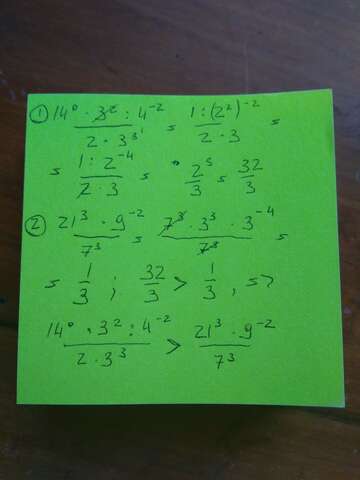 ① 14⁰ · 3² : 4⁻² / 2 · 3³ ¹ = 1 : (2²)⁻² / 2 · 3 =
= 1 : 2⁻⁴ / 2 · 3 = 2⁵ / 3 = 32 / 3
② 21³ · 9⁻² / 7³ = 7³ · 3³ · 3⁻⁴ / 7³ =
= 1 / 3 ; 32 / 3 > 1 / 3 , =>
14⁰ · 3² : 4⁻² / 2 · 3³ > 21³ · 9⁻² / 7³